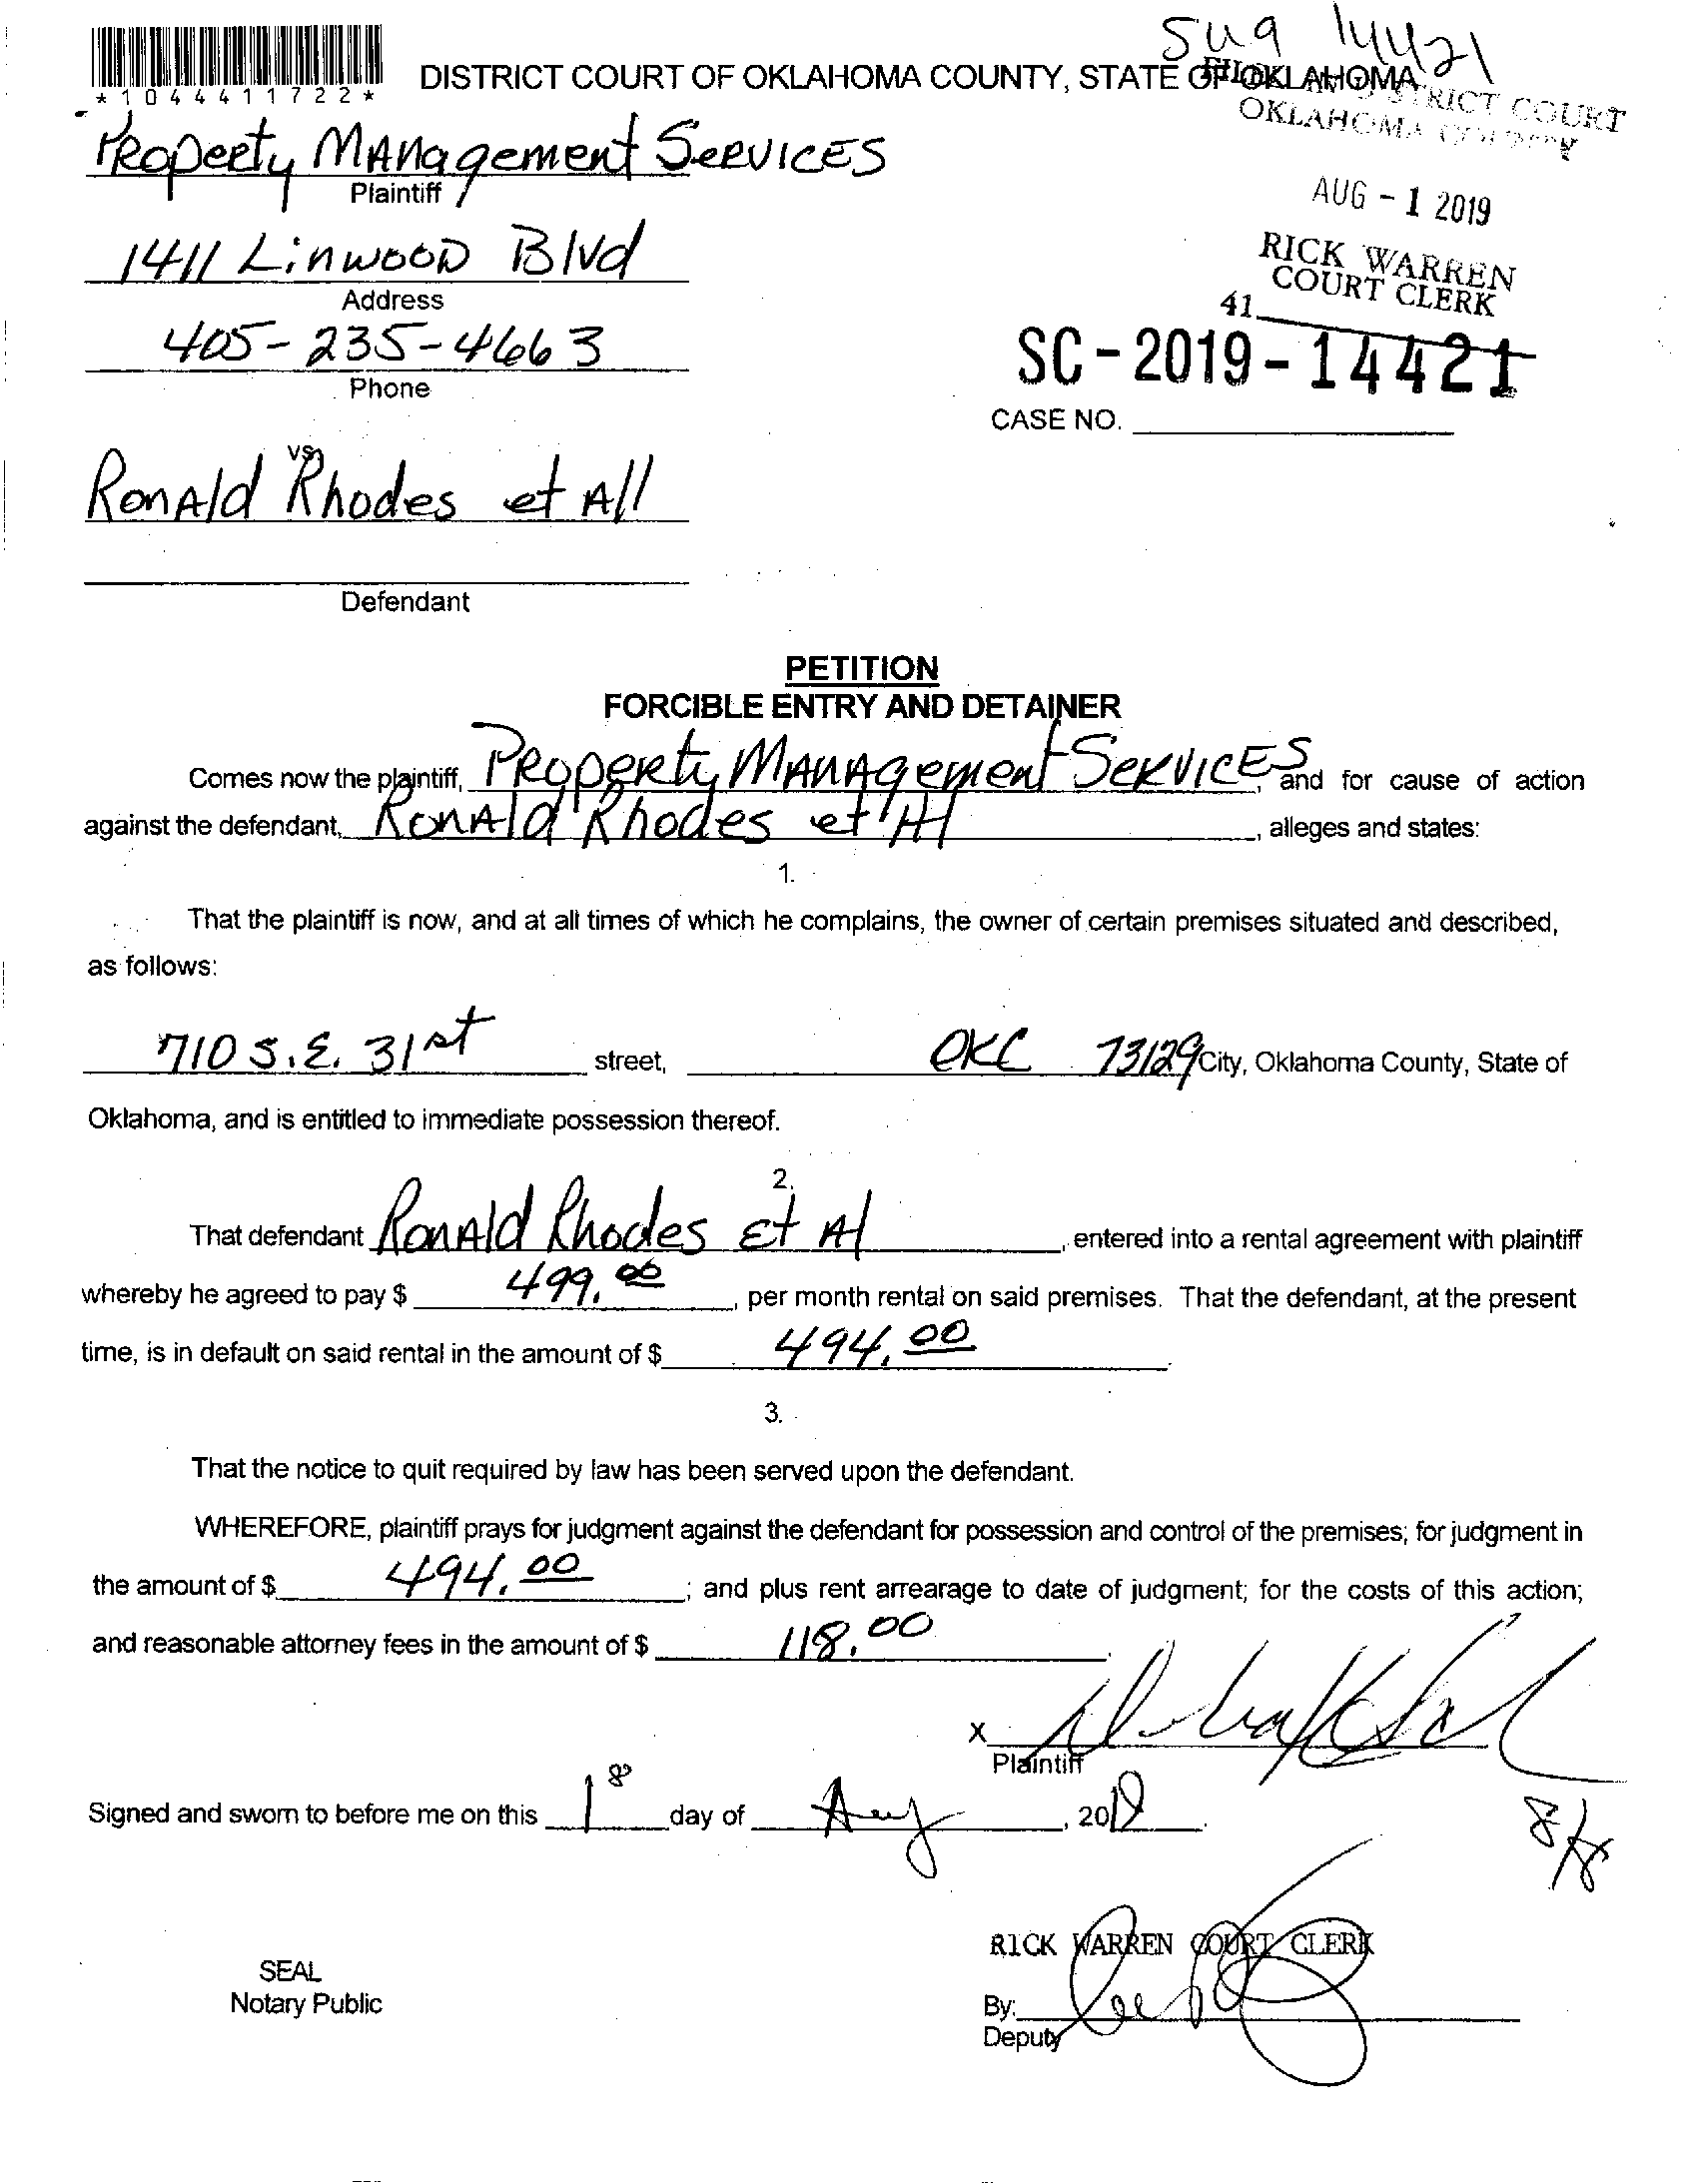 Sug 14421
*1044411722*
DISTRICT COURT OF OKLAHOMA COUNTY, STATE OF OKLAHOMA
FILED IN DISTRICT COURT
OKLAHOMA COUNTY
Property Management Services
Plaintiff
AUG - 1 2019
1411 Linwood Blvd
Address
RICK WARREN
COURT CLERK
41
405-235-4663
Phone
SC-2019-14421
CASE NO.
vs.
Ronald Rhodes et All
Defendant
PETITION
FORCIBLE ENTRY AND DETAINER
Comes now the plaintiff, Property Management Services, and for cause of action
against the defendant, Ronald Rhodes et Al, alleges and states:
1.
That the plaintiff is now, and at all times of which he complains, the owner of certain premises situated and described,
as follows:
710 S.E. 31st street, OKC 73129 City, Oklahoma County, State of
Oklahoma, and is entitled to immediate possession thereof.
2.
That defendant Ronald Rhodes Et Al, entered into a rental agreement with plaintiff
whereby he agreed to pay $ 499.00, per month rental on said premises. That the defendant, at the present
time, is in default on said rental in the amount of $ 494.00.
3.
That the notice to quit required by law has been served upon the defendant.
WHEREFORE, plaintiff prays for judgment against the defendant for possession and control of the premises; for judgment in
the amount of $ 494.00; and plus rent arrearage to date of judgment; for the costs of this action;
and reasonable attorney fees in the amount of $ 118.00.
X
Plaintiff
Signed and sworn to before me on this 1 day of Aug, 2019.
RICK WARREN COURT CLERK
SEAL
Notary Public
By:
Deputy